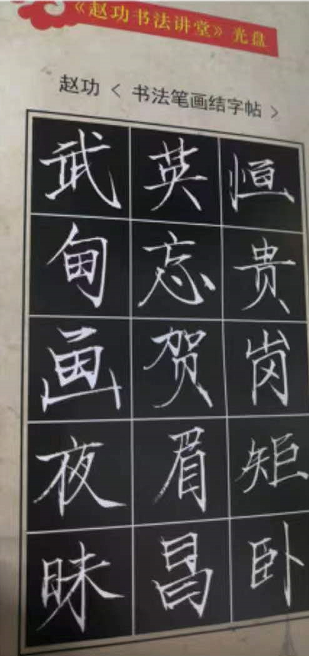 《赵功书法讲堂》光盘
赵功 < 书法笔画结字帖 >
武 英 恒
甸 忘 贵
画 贺 岗
夜 眉 矩
昧 昌 卧